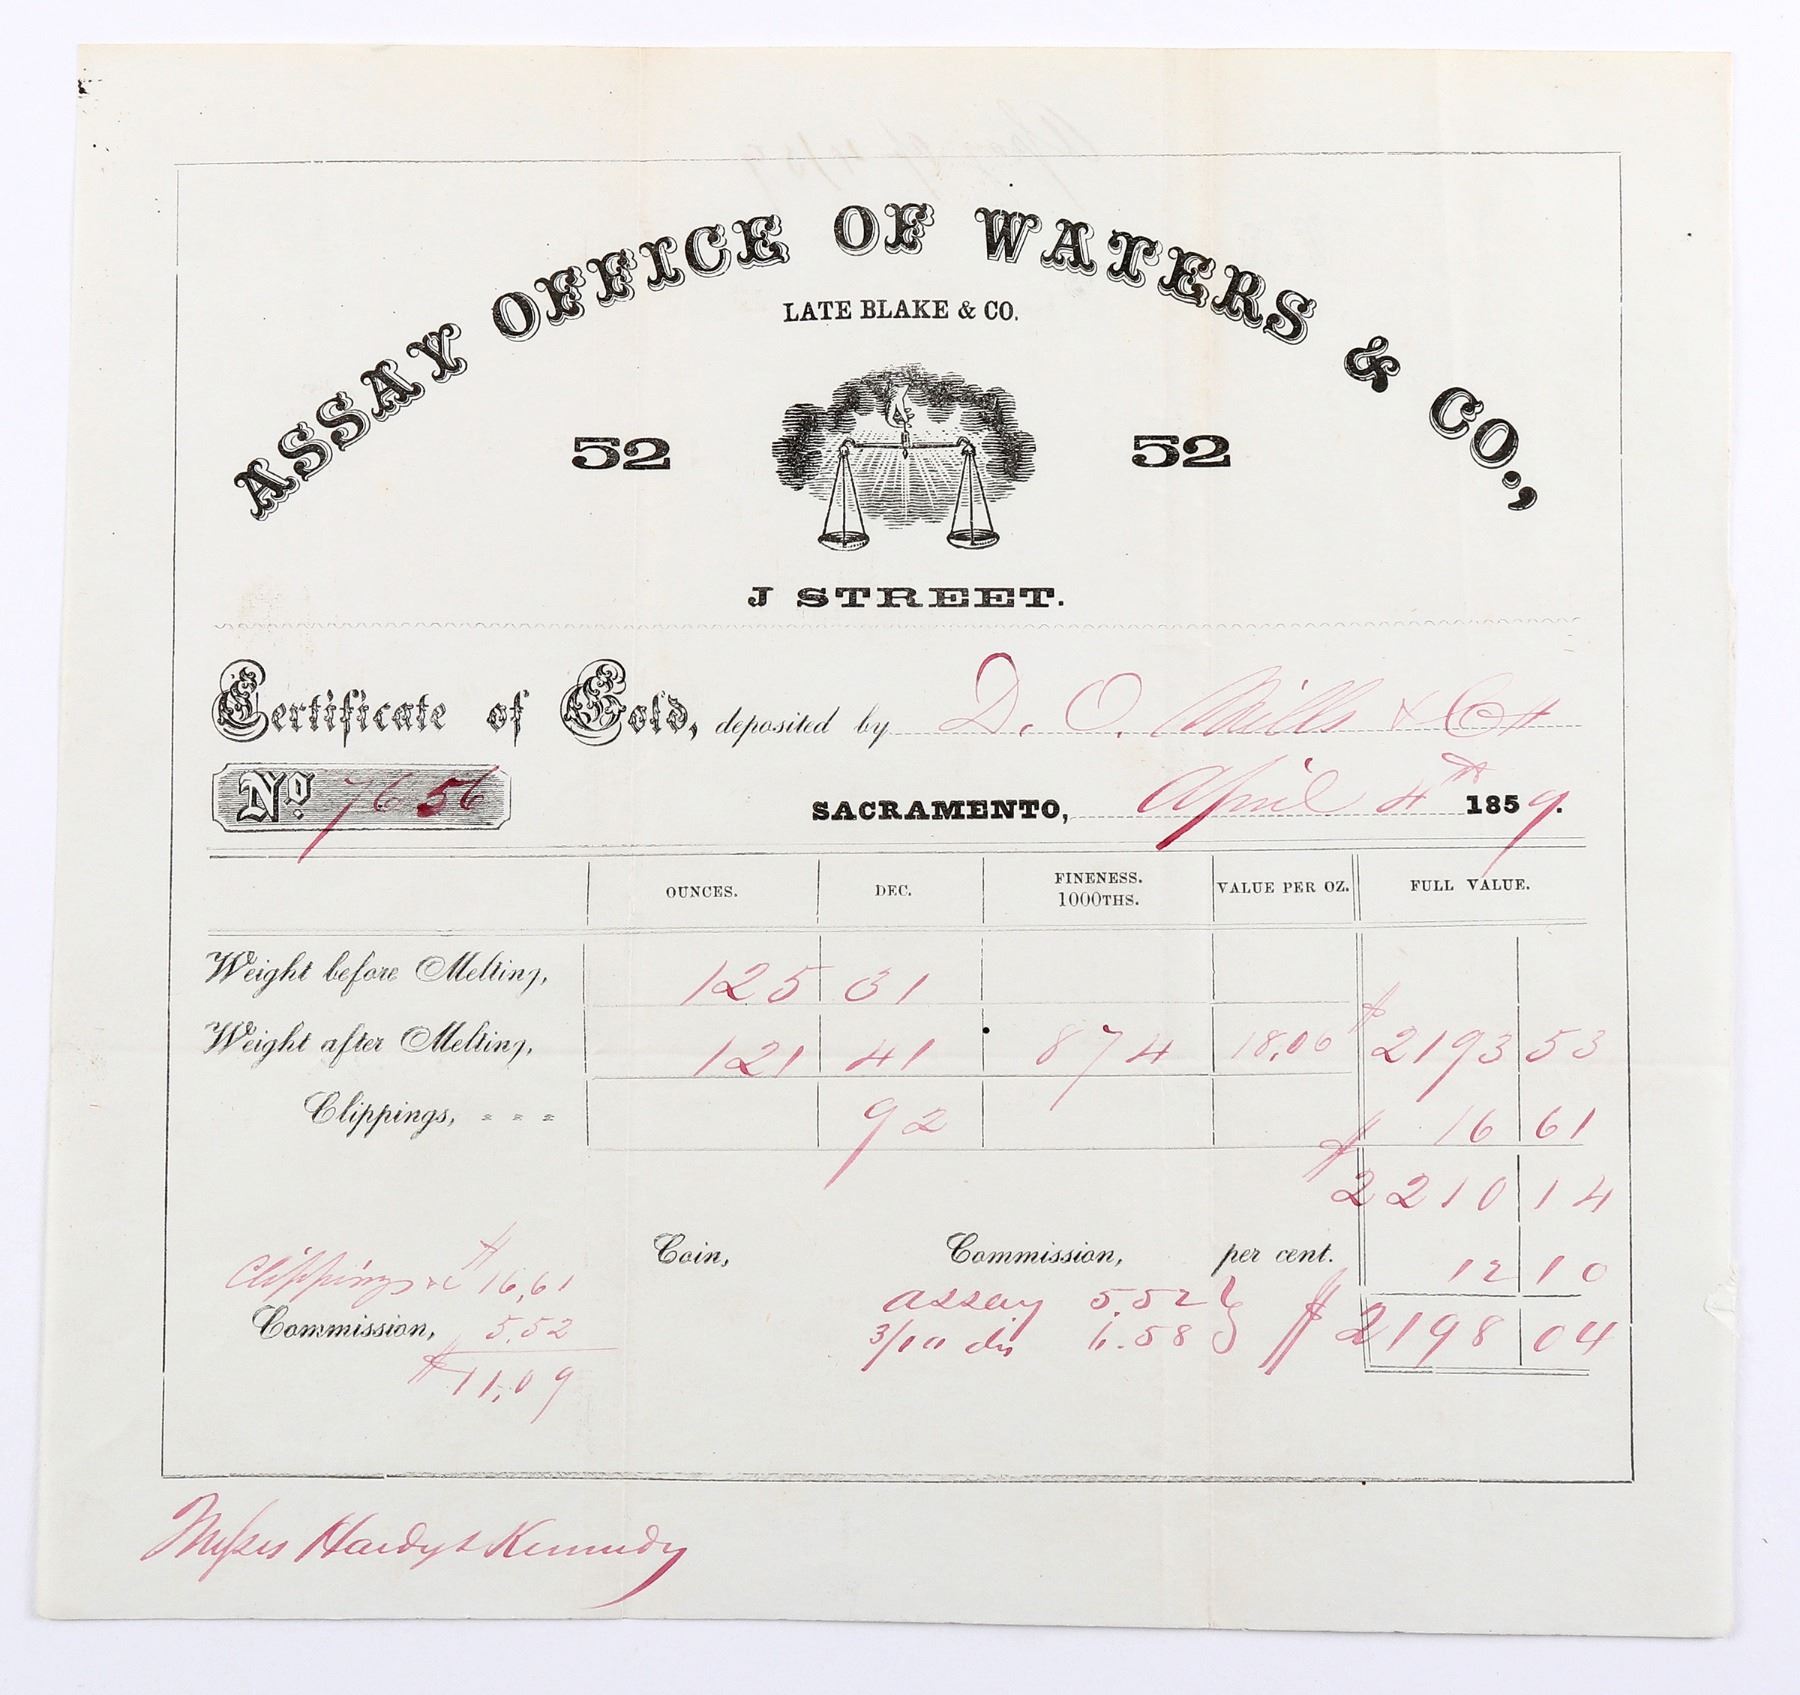 ASSAY OFFICE OF WATERS & CO.,
LATE BLAKE & CO.
52 52
J STREET.
Certificate of Gold, deposited by D. O. Mills & Co
No. 7656 SACRAMENTO, April 4th 1859.
OUNCES. DEC. FINENESS. 1000THS. VALUE PER OZ. FULL VALUE.
Weight before Melting, 125 31
Weight after Melting, 121 41 874 18.06 $2193 53
Clippings, = = = 92 $ 16 61
$2210 14
Coin, Commission, per cent. 12 10
Clippings $16,61 assay 5.52
Commission, 5.52 3/10 dis 6.58 $2198 04
$11,09
Messrs Hardy & Kennedy